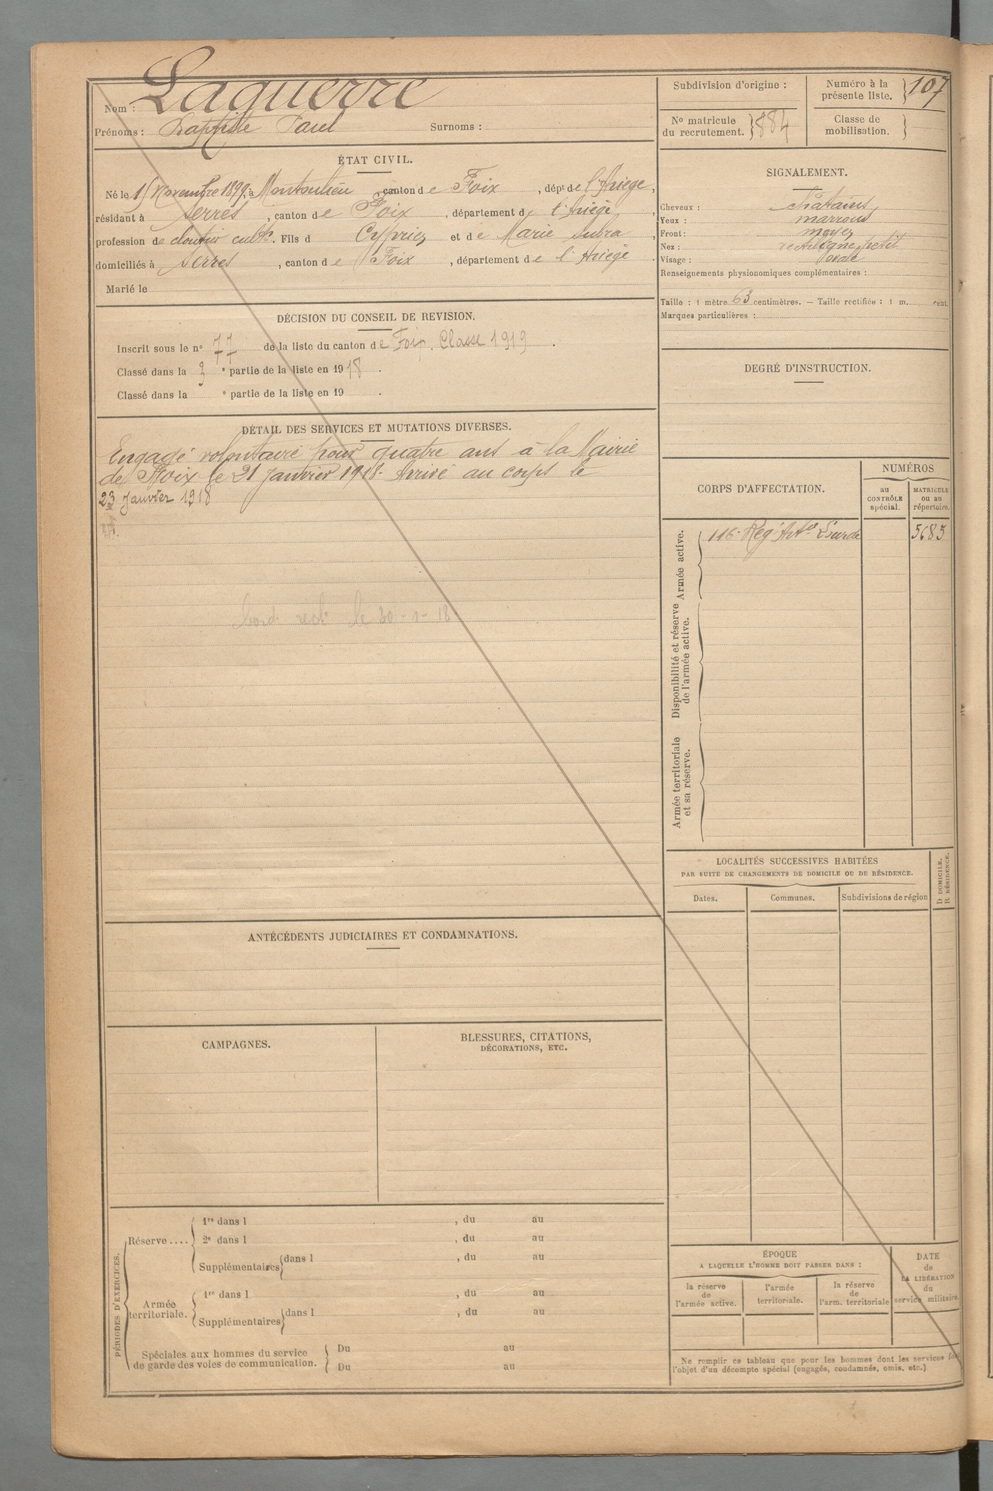 Nom : Laguerre
Prénoms : Baptiste Paul Surnoms :
ÉTAT CIVIL.
Né le 1 Novembre 1899, à Montoulieu, canton de Foix, dépt de l'Ariège,
résidant à Serres, canton de Foix, département de l'Ariège,
profession de cult. Fils de Cyprien et de Marie Subra,
domiciliés à Serres, canton de Foix, département de l'Ariège
Marié le
DÉCISION DU CONSEIL DE REVISION.
Inscrit sous le n° 77 de la liste du canton de Foix. Classe 1919.
Classé dans la 3e partie de la liste en 1918.
Classé dans la e partie de la liste en 19 .
DÉTAIL DES SERVICES ET MUTATIONS DIVERSES.
Engagé volontaire pour quatre ans à la Mairie
de Foix le 21 Janvier 1918. Arrivé au corps le
23 Janvier 1918
le 30-1-18
ANTÉCÉDENTS JUDICIAIRES ET CONDAMNATIONS.
CAMPAGNES.
BLESSURES, CITATIONS,
DÉCORATIONS, ETC.
PÉRIODES D'EXERCICES.
Réserve....
1re dans l , du au
2e dans l , du au
Supplémentaires dans l , du au
Armée
territoriale.
1re dans l , du au
Supplémentaires dans l , du au
Spéciales aux hommes du service
de garde des voies de communication.
Du au
Du au
Subdivision d'origine :
Numéro à la
présente liste. 107
No matricule
du recrutement. 884
Classe de
mobilisation.
SIGNALEMENT.
Cheveux : châtains
Yeux : marrons
Front : moyen
Nez : rectiligne petit
Visage : ovale
Renseignements physionomiques complémentaires :
Taille : 1 mètre 63 centimètres. — Taille rectifiée : 1 m. cent.
Marques particulières :
DEGRÉ D'INSTRUCTION.
CORPS D'AFFECTATION.
NUMÉROS
au
CONTRÔLE
spécial.
MATRICULE
ou au
répertoire.
Armée active.
116e Rég. Artie Lourde 5685
Disponibilité et réserve
de l'armée active.
Armée territoriale
et sa réserve.
LOCALITÉS SUCCESSIVES HABITÉES
PAR SUITE DE CHANGEMENTS DE DOMICILE OU DE RÉSIDENCE.
D. DOMICILE.
R. RÉSIDENCE.
Dates. Communes. Subdivisions de région
ÉPOQUE
A LAQUELLE L'HOMME DOIT PASSER DANS :
la réserve
de
l'armée active.
l'armée
territoriale.
la réserve
de
l'arm. territoriale
DATE
de
LA LIBÉRATION
du
service militaire.
Ne remplir ce tableau que pour les hommes dont les services
l'objet d'un décompte spécial (engagés, condamnés, omis, etc.)